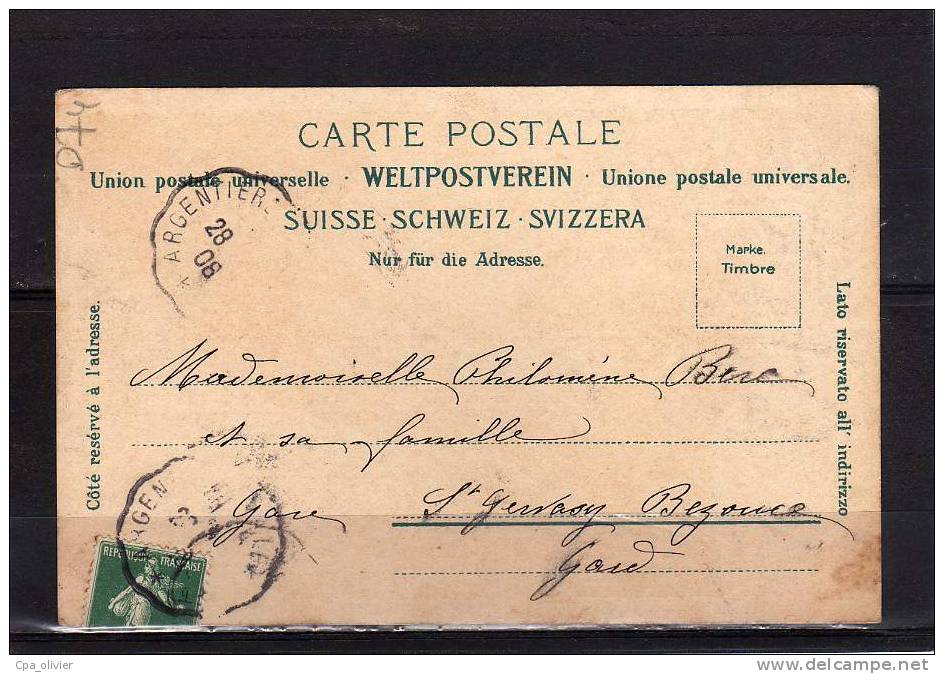 D74
CARTE POSTALE
Union postale universelle · WELTPOSTVEREIN · Unione postale universale.
SUISSE · SCHWEIZ · SVIZZERA
Nur für die Adresse.
ARGENTIER
28
08
Marke.
Timbre
Côté resérvé à l'adresse.
Lato riservato all' indirizzo
Mademoiselle Philomène Berc
et sa famille
Gare St Gervasy Bezouce
Gard
ARGEN
REPUBLIQUE FRANÇAISE
Cpa_olivier
www.delcampe.net